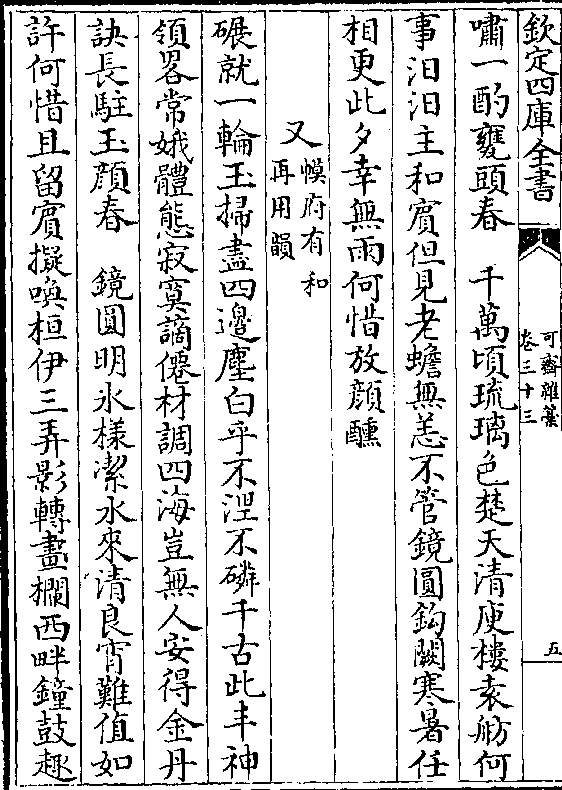 欽定四庫全書
可齋雜藁
卷三十三
五
嘯一酌甕頭春　千萬頃琉璃色楚天清庾樓袁舫何
事汨汨主和賓但見老蟾無恙不管鏡圓鈎闕寒暑任
相更此夕幸無雨何惜放顔醺
又
幙府有和
再用韻
碾就一輪玉掃盡四邊塵白乎不涅不磷千古此丰神
領畧常娥體態寂寞謫僊材調四海豈無人安得金丹
訣長駐玉顔春　鏡圓明氷様潔水來清良宵難值如
許何惜且留賓擬喚桓伊三弄影轉畫欄西畔鐘鼓趣